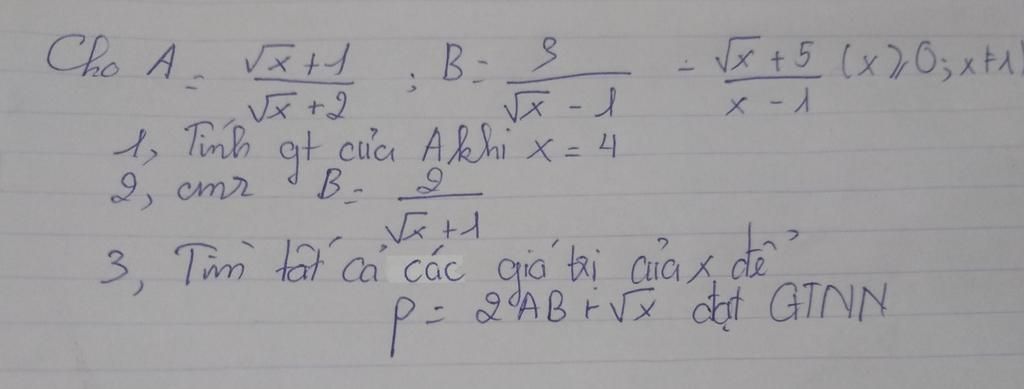 Cho A = √x + 1 / √x + 2 ; B = 3 / √x - 1 - √x + 5 / x - 1 (x ≥ 0; x ≠ 1)
1, Tính gt của A khi x = 4
2, cmr B = 2 / √x + 1
3, Tìm tất cả các giá trị của x để
P = 2AB + √x đạt GTNN